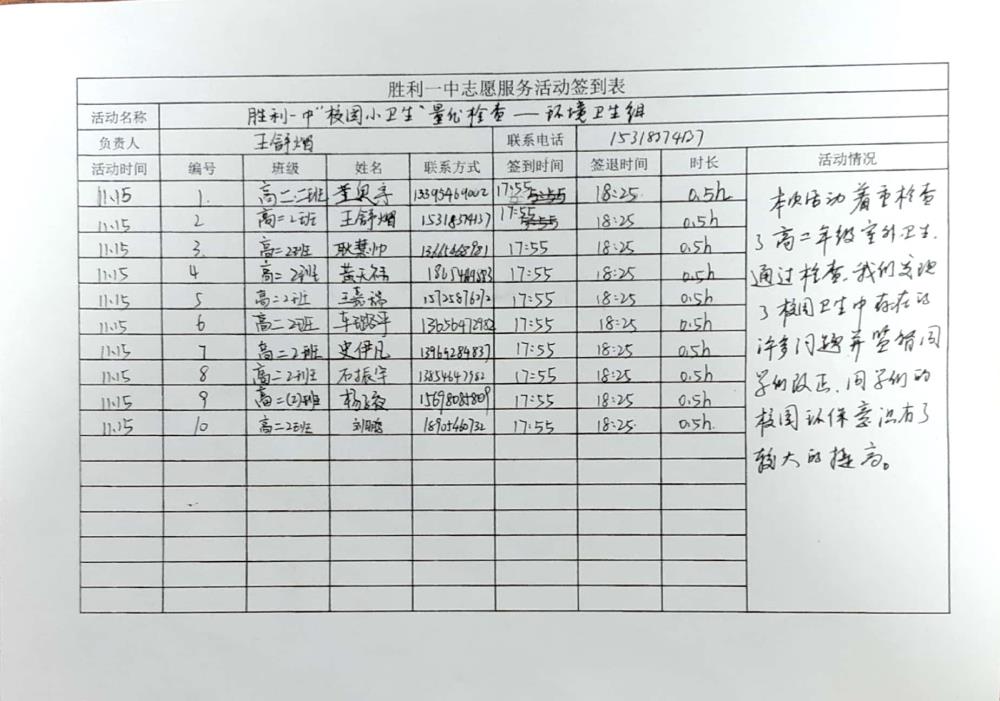 胜利一中志愿服务活动签到表
活动名称 胜利一中"校园小卫生"量化检查——环境卫生组
负责人 王舒 联系电话
活动时间 编号 班级 姓名 联系方式 签到时间 签退时间 时长 活动情况
11.15 1. 高二.二班 17:55 18:25 0.5h
11.15 2 高二2班 王舒 17:55 18:25 0.5h
11.15 3. 高二2班 耿慧帅 17:55 18:25 0.5h
11.15 4 高二2班 17:55 18:25 0.5h
11.15 5 高二2班 王嘉瑞 15725876272 17:55 18:25 0.5h
11.15 6 高二2班 13656472982 17:55 18:25 0.5h
11.15 7 高二2班 史伊凡 13969284837 17:55 18:25 0.5h
11.15 8 高二2班 石振宇 13854647982 17:55 18:25 0.5h
11.15 9 高二(2)班 17:55 18:25 0.5h
11.15 10 高二2班 刘鹏 17:55 18:25 0.5h
本次活动着重检查
了高二年级室外卫生.
通过检查,我们发现
了校园卫生中存在的
许多问题并监督同
学们改正.同学们的
校园环保意识有了
较大的提高。